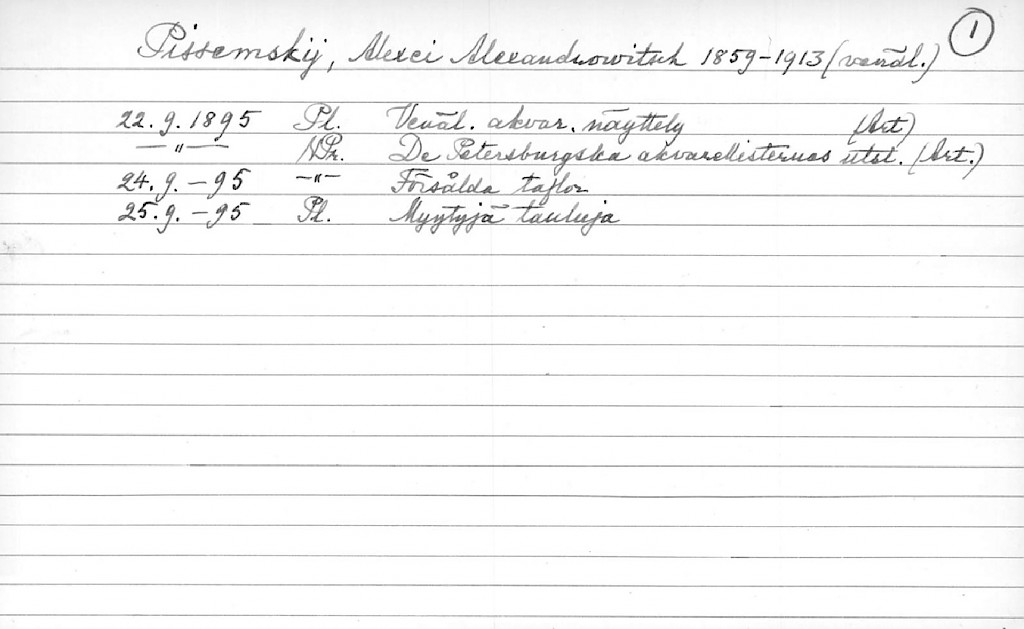 Pissemskij, Alexei Alexandrowitsch 1859-1913 (venäl.) 1
22.9.1895 Pl. Venäl. akvar. näyttely (Art)
—〃— NPr. De Petersburgska akvarellisternas utst. (Art.)
24.9.-95 —〃— Försålda taflor
25.9.-95 Pl. Myytyjä tauluja